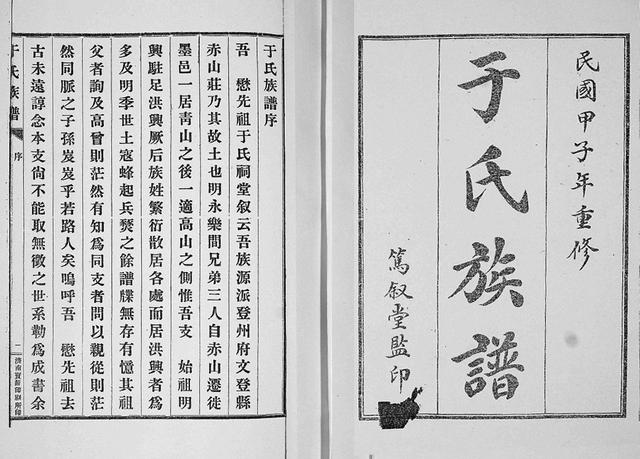 民國甲子年重修
于氏族譜
篤叙堂監印
于氏族譜序
吾 懋先祖于氏祠堂叙云吾族源派登州府文登縣
赤山莊乃其故土也明永樂間兄弟三人自赤山遷徙
墨邑一居靑山之後一適高山之側惟吾支 始祖明
興駐足洪興厥后族姓繁衍散居各處而居洪興者爲
多及明季世土寇蜂起兵燹之餘譜牒無存有憶其祖
父者詢及高曾則茫然有知爲同支者問以親從則茫
然同脈之子孫岌岌乎若路人矣嗚呼吾 懋先祖去
古未遠諄念本支尙不能取無徵之世系勒爲成書余
于氏族譜
序
二
濟南
印刷所印